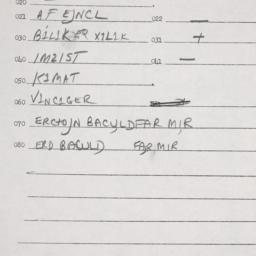 020
021 AF EJNCL 022 —
030 BİLİKER XILIK 031 +
040 IMZIST 041 —
050 KIMAT
060 VINCIGER
070 ERCTOJN BACYLDFAR MIR
080 ERD BACULD FARMIR